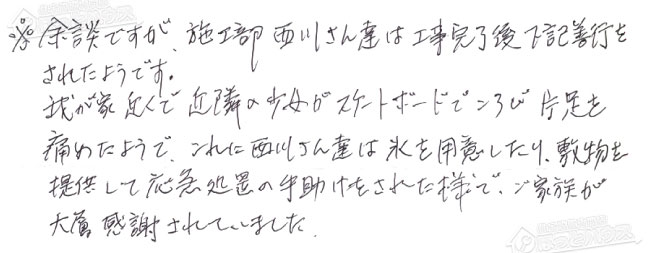 ※余談ですが、施工部西川さん達は工事完了後下記善行を
されたようです。
我が家近くで近隣の少女がスケートボードでころび片足を
痛めたようで、これに西川さん達は氷を用意したり、敷物を
提供して応急処置の手助けをされた様で、ご家族が
大層感謝されていました。